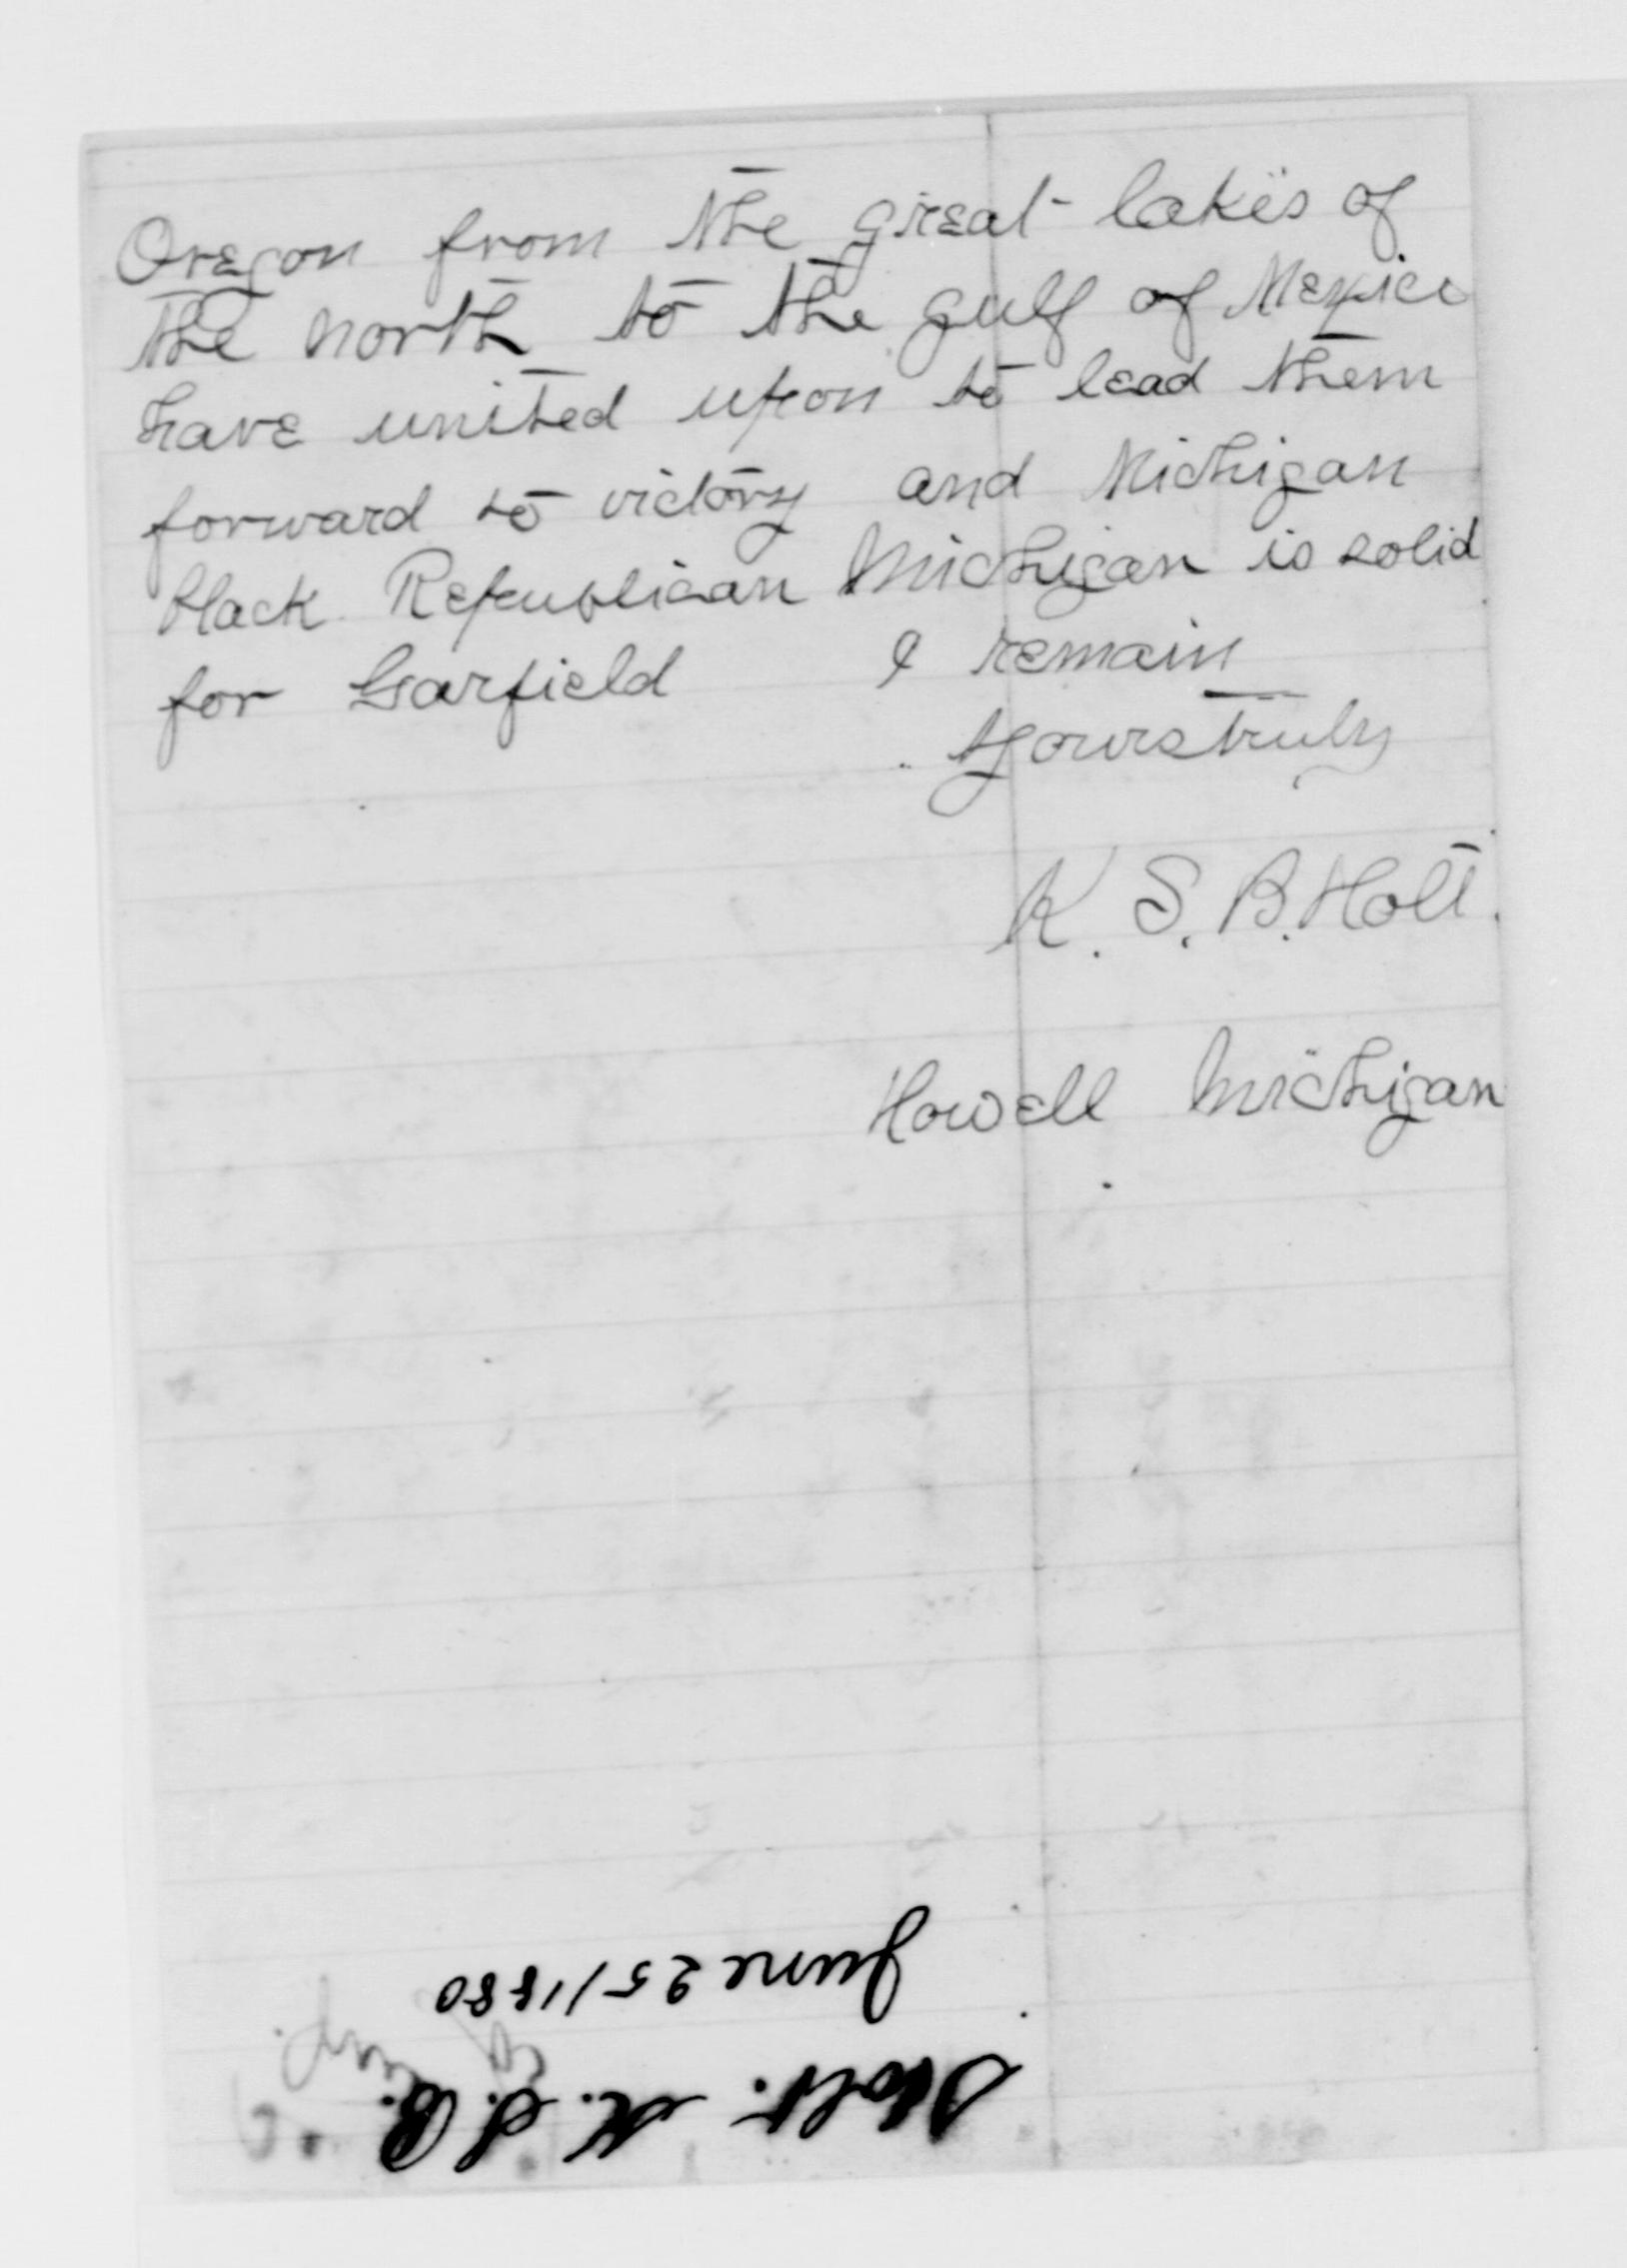 Oregon from the great lakes of
the north to the gulf of Mexico
have united upon to lead them
forward to victory and Michigan
black Republican Michigan is solid
for Garfield I remain
Yours truly
K. S. B. Holt.
Howell Michigan
Holt. K. S. B.
June 25/1880